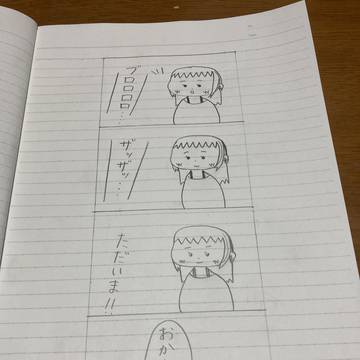 ブロロロロ…
ザッザッ…
ただいま!!
おか